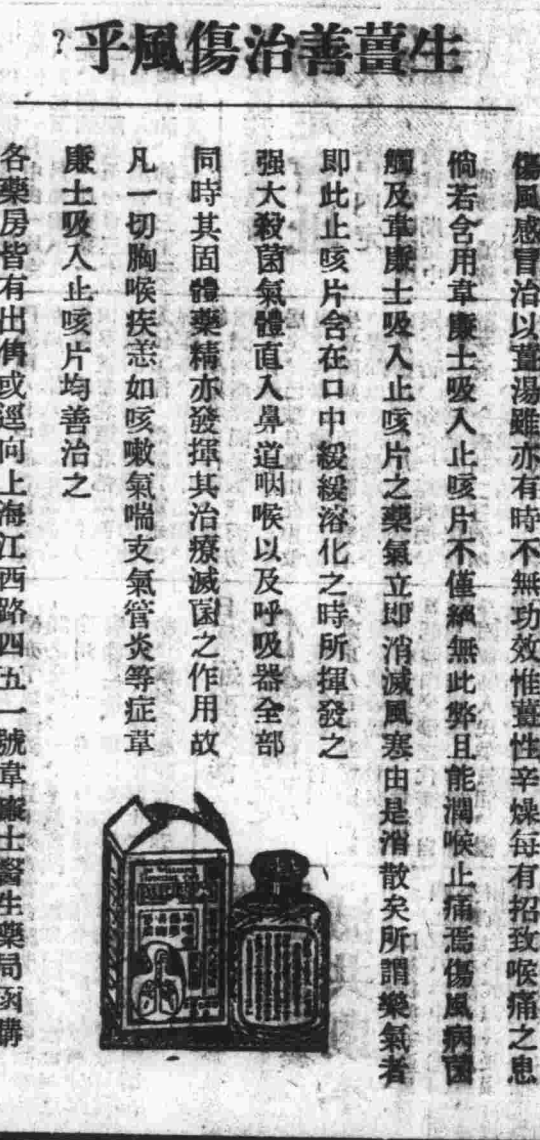 生薑善治傷風乎？
傷風感冒治以薑湯雖亦有時不無功效惟薑性辛燥每有招致喉痛之患
倘若含用韋廉士吸入止咳片不僅絕無此弊且能潤喉止痛焉傷風病菌
觸及韋廉士吸入止咳片之藥氣立即消滅風寒由是消散矣所謂藥氣者
即此止咳片含在口中緩緩溶化之時所揮發之
强大殺菌氣體直入鼻道咽喉以及呼吸器全部
同時其固體藥精亦發揮其治療滅菌之作用故
凡一切胸喉疾恙如咳嗽氣喘支氣管炎等症韋
廉士吸入止咳片均善治之
各藥房皆有出售或逕向上海江西路四五一號韋廉士醫生藥局函購